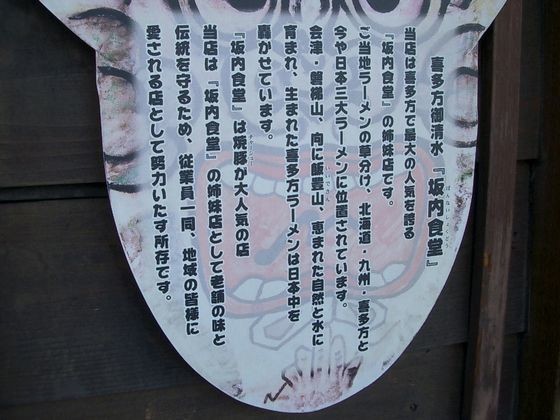 喜多方御清水『坂内食堂』
ばんないしょくどう
当店は喜多方で最大の人気を誇る
『坂内食堂』の姉妹店です。
ご当地ラーメンの草分け、北海道・九州・喜多方と
今や日本三大ラーメンに位置されています。
会津・磐梯山、向に飯豊山、恵まれた自然と水に
いいでさん
育まれ、生まれた喜多方ラーメンは日本中を
轟かせています。
『坂内食堂』は焼豚が大人気の店
チャーシュー
当店は『坂内食堂』の姉妹店として老舗の味と
伝統を守るため、従業員一同、地域の皆様に
愛される店として努力いたす所存です。